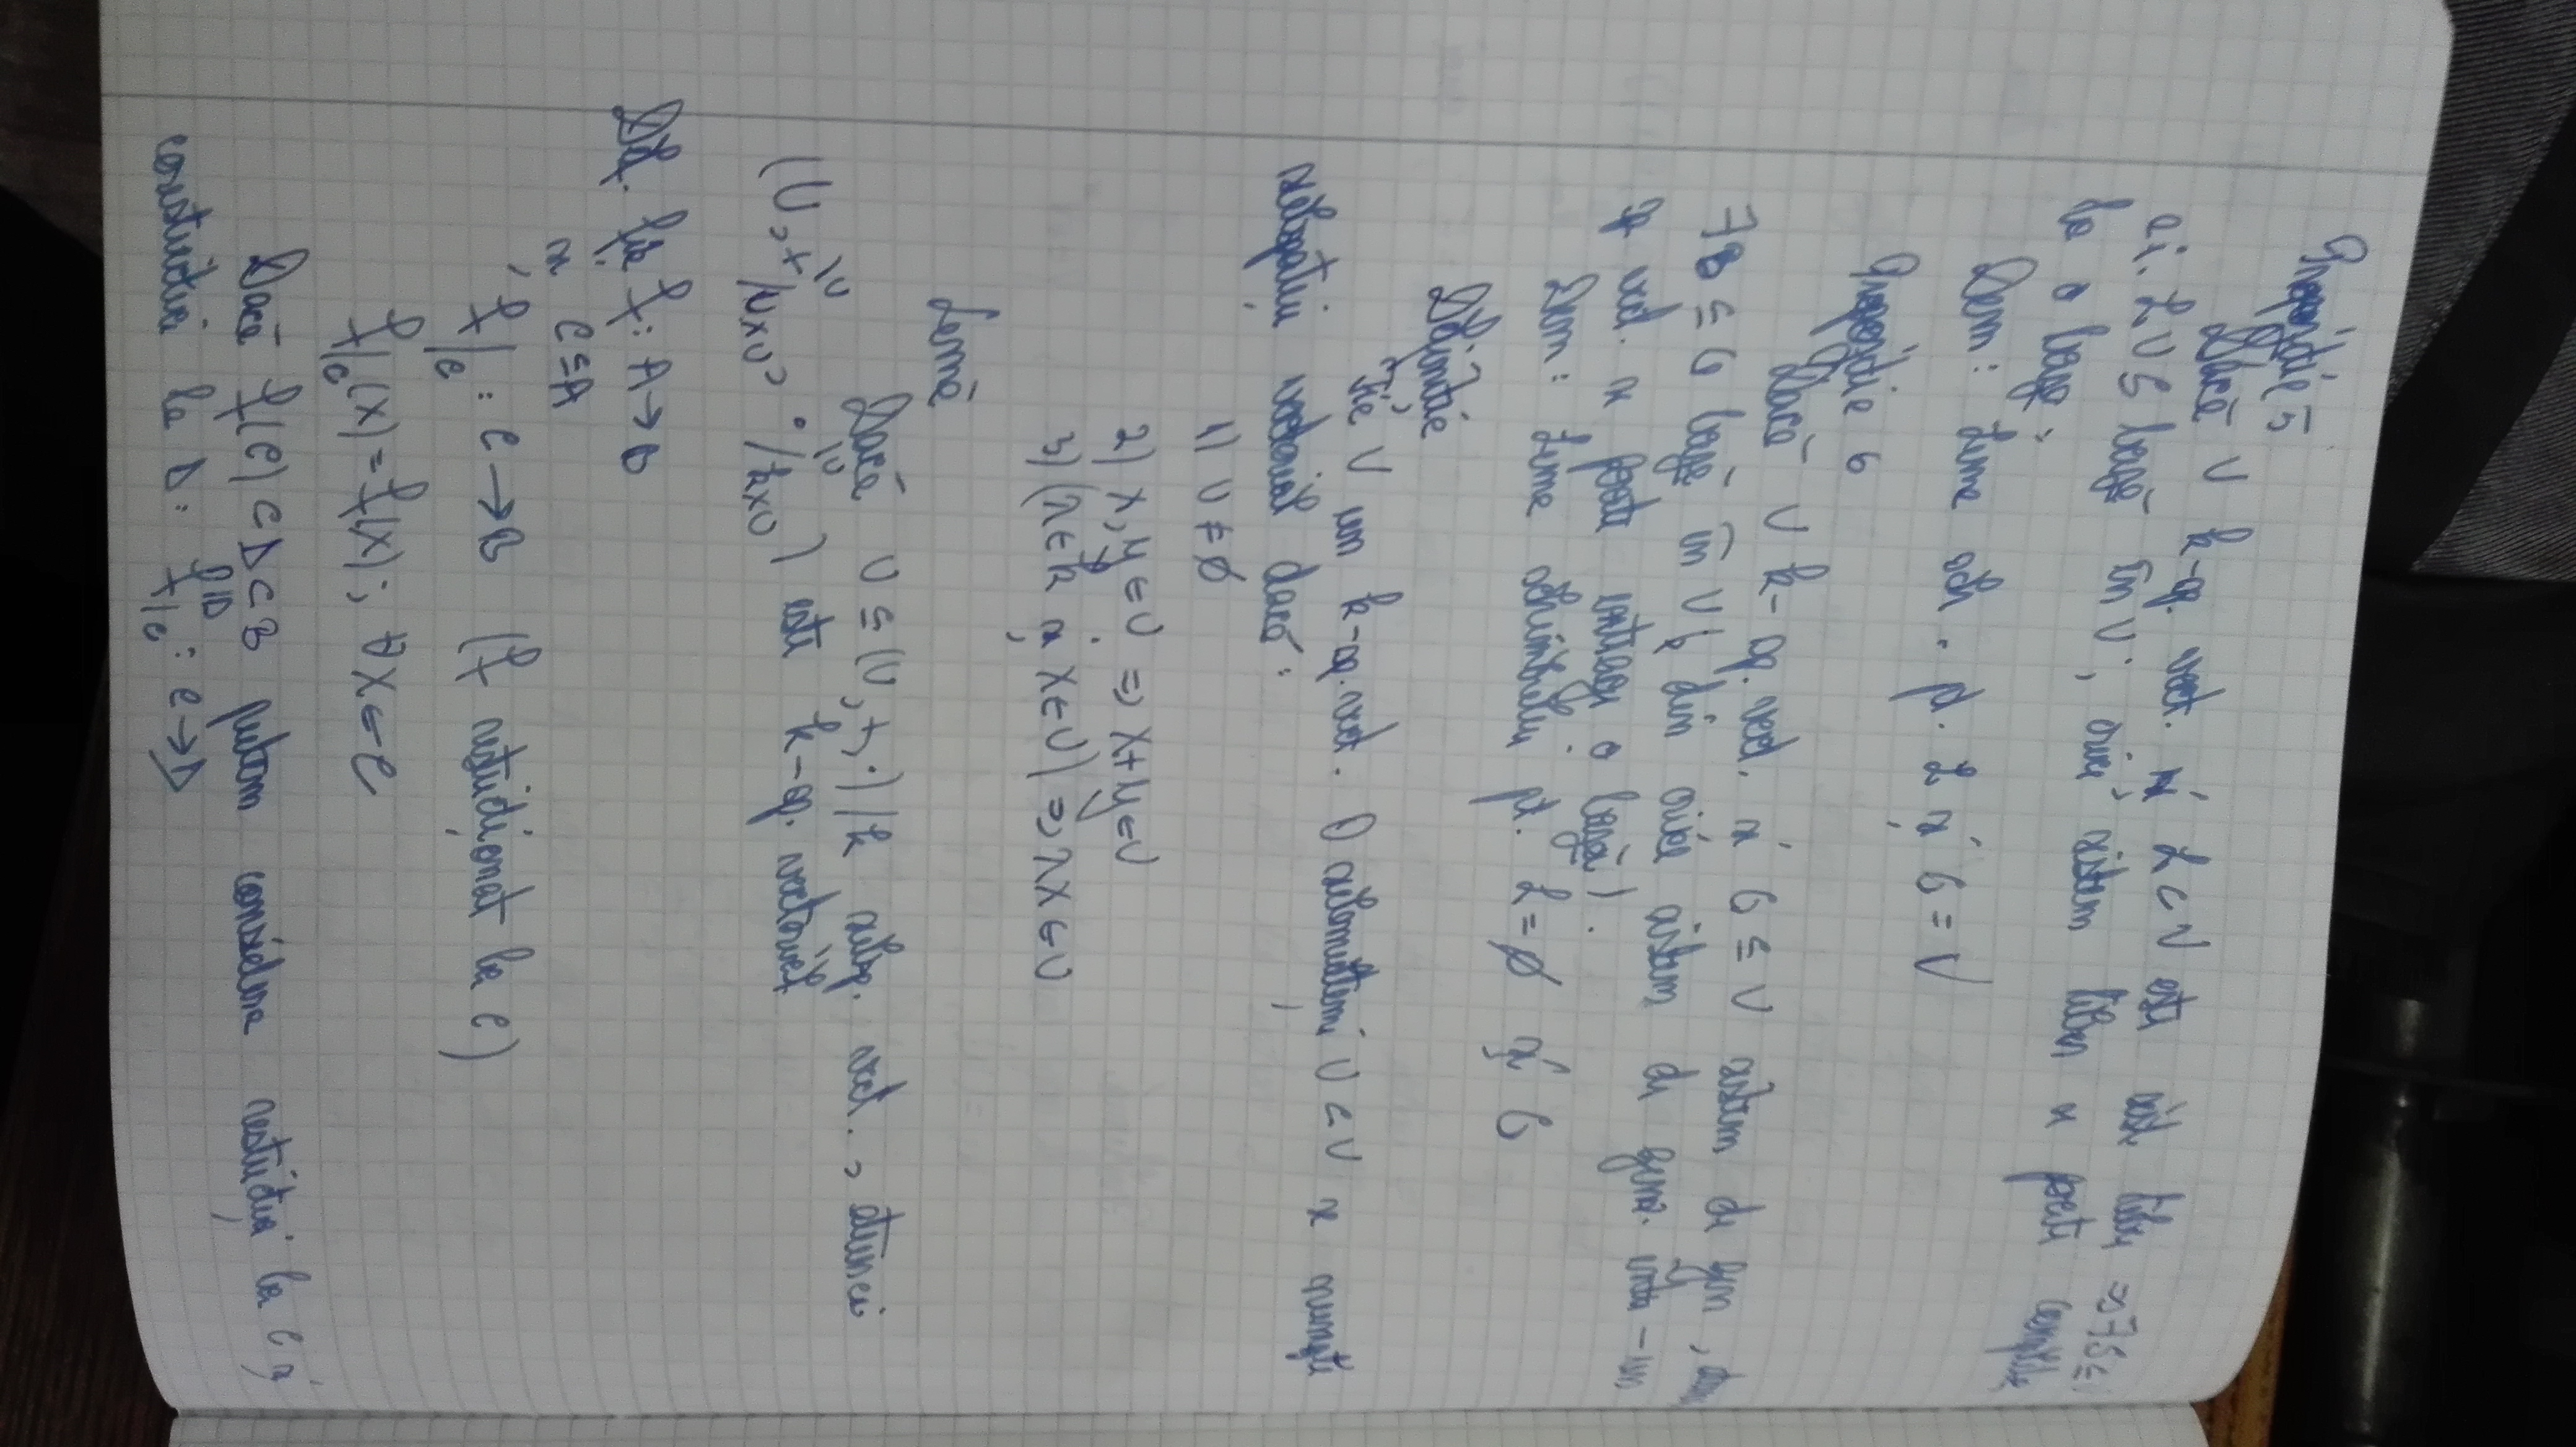 Propoziție 5
Dacă V k-sp. vect. și L ⊂ V este sist. liber ⇒ ∃ G ⊆
a.î. L ∪ G bază în V; orice sistem liber se poate completa
la o bază;
Dem: Leme sch. pt. L și G = V
Propoziție 6
Dacă V k-sp. vect. și G ⊆ V sistem de gen, atunci
∃ B ⊆ G bază în V (din orice sistem de gener. într-un
sp vect. se poate extrage o bază).
Dem: Leme schimbului pt. L = ∅ și G
Definiție
Fie V un k-sp. vect. O submulțime U ⊂ V se numește
subspațiu vectorial dacă:
1) U ≠ ∅
2) x, y ∈ U ⇒ x+y ∈ U
3) (λ ∈ k și x ∈ U) ⇒ λx ∈ U
Lemă
Dacă U ⊆ (V, +, ·) / k subsp. vect., atunci
(U, +|ᵁ/U×U, ·|ᵁ/k×U) este k-sp. vectorial
Def. Fie f: A → B
și C ⊆ A
f/C : C → B (f restricționat la C)
f/C(x) = f(x); ∀ x ∈ C
Dacă f(C) ⊂ D ⊂ B putem considera restricția la C și
corestricția la D: f|D/C : C → D